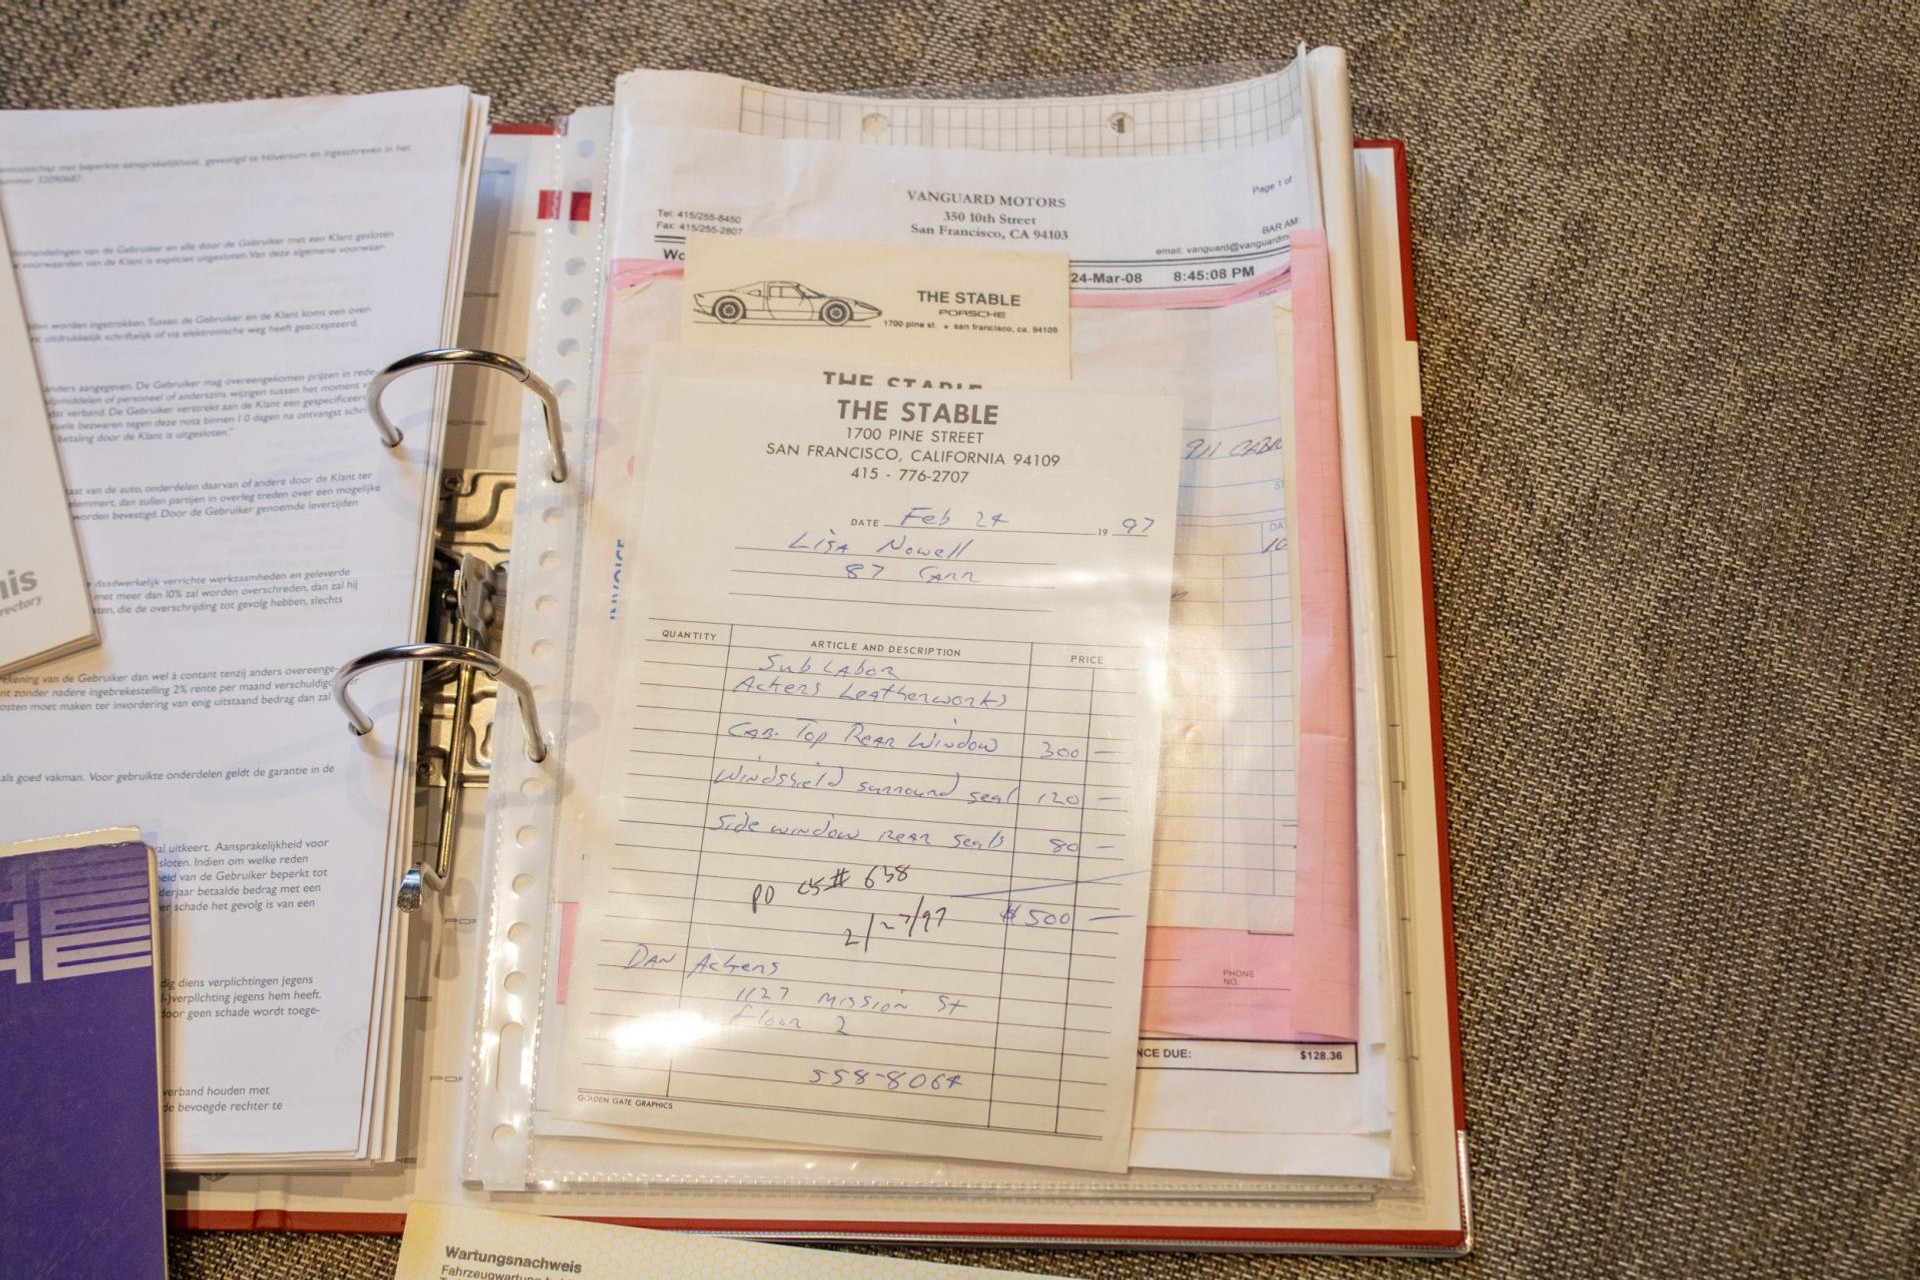 gevestigd te Hilversum en ingeschreven in het
ehandelingen van de Gebruiker en alle door de Gebruiker met een Klant gesloten
voorwaarden van de Klant is expliciet uitgesloten. Van deze algemene voorwaar-
den worden ingetrokken. Tussen de Gebruiker en de Klant komt een over-
uitdrukkelijk schriftelijk of via elektronische weg heeft geaccepteerd.
anders aangegeven. De Gebruiker mag overeengekomen prijzen in rede-
lpmiddelen of personeel of anderszins wijzigen tussen het moment v
dat verband. De Gebruiker verstrekt aan de Klant een gespecificeer
tuele bezwaren tegen deze nota binnen 10 dagen na ontvangst schri
betaling door de Klant is uitgesloten."
taat van de auto, onderdelen daarvan of andere door de Klant ter
lemmert, dan zullen partijen in overleg treden over een mogelijke
worden bevestigd. Door de Gebruiker genoemde levertijden
daadwerkelijk verrichte werkzaamheden en geleverde
met meer dan 10% zal worden overschreden, dan zal hij
sten, die de overschrijding tot gevolg hebben, slechts
ekening van de Gebruiker dan wel à contant tenzij anders overeenge-
nt zonder nadere ingebrekestelling 2% rente per maand verschuldigd
osten moet maken ter invordering van enig uitstaand bedrag dan zal
als goed vakman. Voor gebruikte onderdelen geldt de garantie in de
al uitkeert. Aansprakelijkheid voor
sloten. Indien om welke reden
heid van de Gebruiker beperkt tot
derjaar betaalde bedrag met een
er schade het gevolg is van een
dig diens verplichtingen jegens
-)verplichting jegens hem heeft.
door geen schade wordt toege-
verband houden met
de bevoegde rechter te
nis
rectory
HE
Tel: 415/255-8450
Fax: 415/255-2807
VANGUARD MOTORS
350 10th Street
San Francisco, CA 94103
Page 1 of
BAR AM
email: vanguard@vanguardm
Wo
24-Mar-08 8:45:08 PM
THE STABLE
PORSCHE
1700 pine st. • san francisco, ca. 94109
THE STABLE
THE STABLE
1700 PINE STREET
SAN FRANCISCO, CALIFORNIA 94109
415 - 776-2707
DATE Feb 24 1997
Lisa Nowell
87 Carr
QUANTITY ARTICLE AND DESCRIPTION PRICE
Sub Labor
Ackers Leatherworks
Cab. Top Rear Window 300 —
Windshield surround seal 120 —
Side window rear seals 80 —
PD CS# 638
$500 —
2/27/97
Dan Ackens
1127 Mission St
Floor 2
558-8064
GOLDEN GATE GRAPHICS
INVOICE
911 CABR
DA
10
PHONE
NO.
NCE DUE: $128.36
Wartungsnachweis